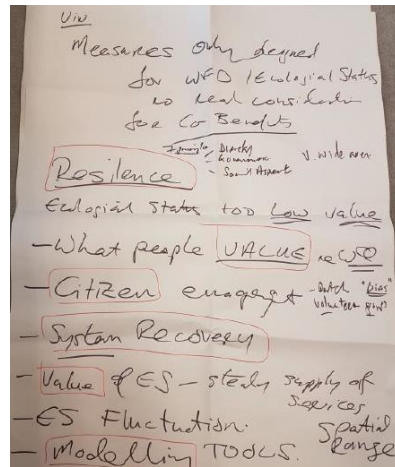 Measures only designed
for WFD / Ecological Status
no real consideration
for Co Benefits
V. wide area
Resilence
Ecological Status too Low value
- What people VALUE re WFD
- Citizen engagemt - Dutch "bias"
volunteer
- System Recovery
- Value of ES - steady supply of
Services
- ES Fluctuation. Spatial
Range
- Modelling TOOLS.